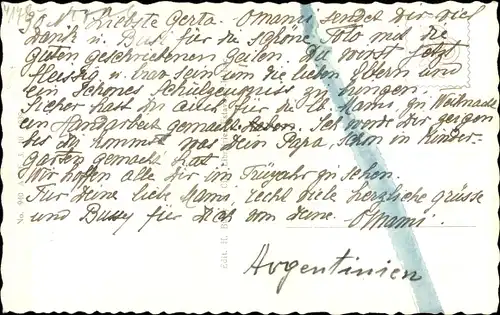 Liebste Gerta. Omami sendet Dir viel
Dank u. Bussi für die schöne Foto und die
guten geschriebenen Zeilen. Du wirst jetzt
fleissig u. brav sein um die lieben Eltern und
ein schönes Schulzeugniss zu bringen.
Sicher hast du auch für die lb Mami zu Weihnacht
ein Handarbeit gemacht haben. Ich werde Dir zeigen
bis du kommst was Dein Papa, schon in Kinder-
garten gemacht hat
Wir hoffen alle Dir im Frühjahr zu sehen.
Für Deine liebe Mami, recht viele herzliche Grüsse
und Bussy für Dich von Deine Omami.
Argentinien
No.
Edit. H.